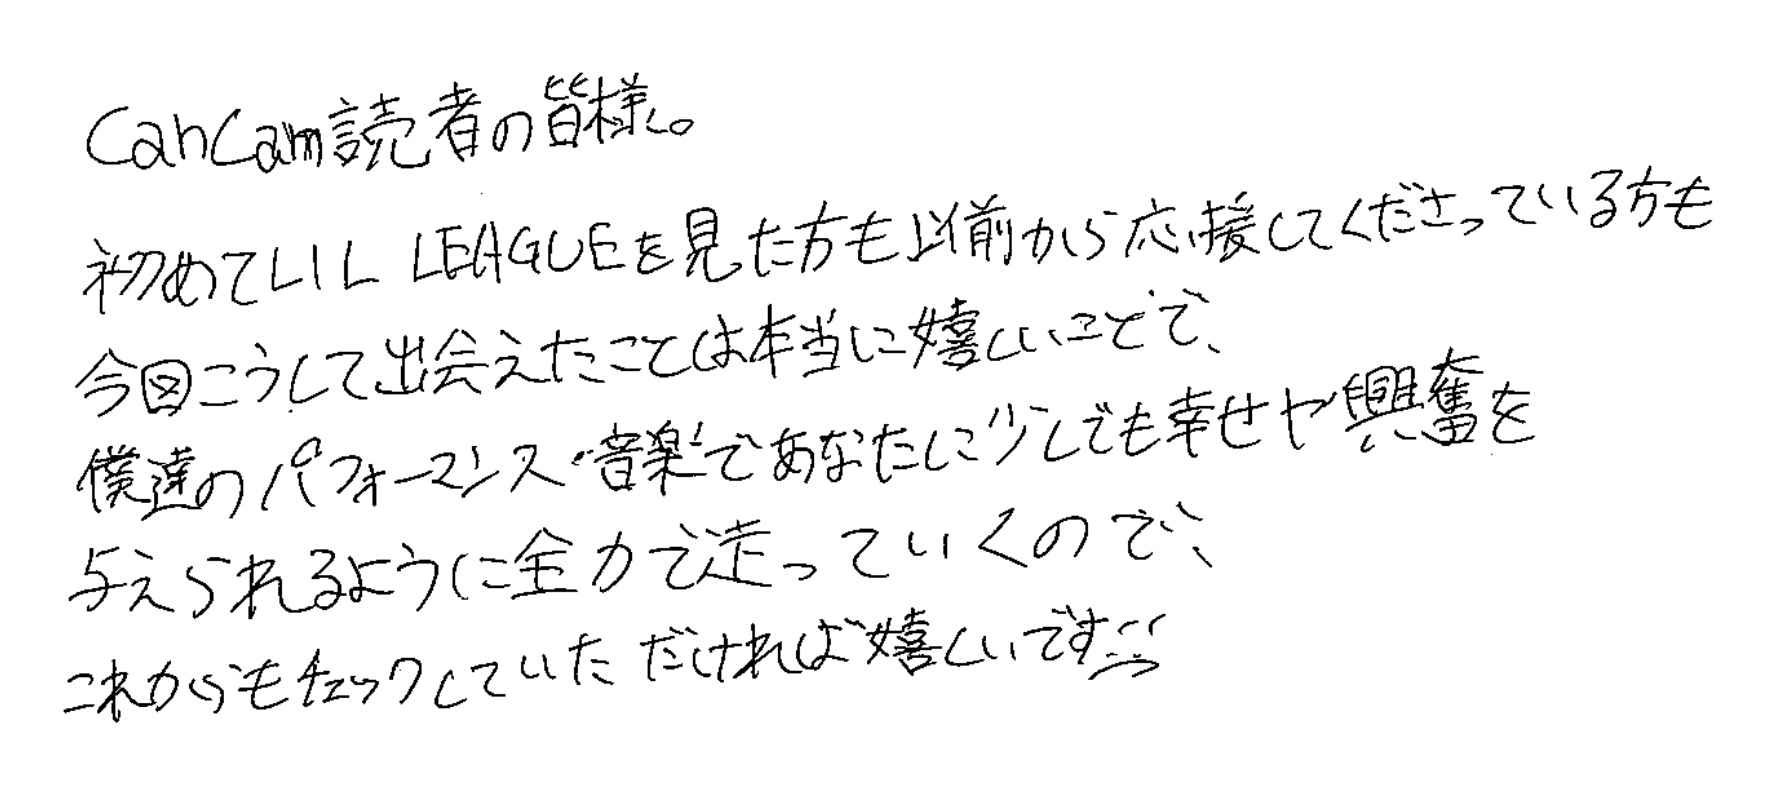 CanCam読者の皆様。
初めてLIL LEAGUEを見た方も以前から応援してくださっている方も
今回こうして出会えたことは本当に嬉しいことで、
僕達のパフォーマンス・音楽であなたに少しでも幸せや興奮を
与えられるように全力で走っていくので、
これからもチェックしていただければ嬉しいです